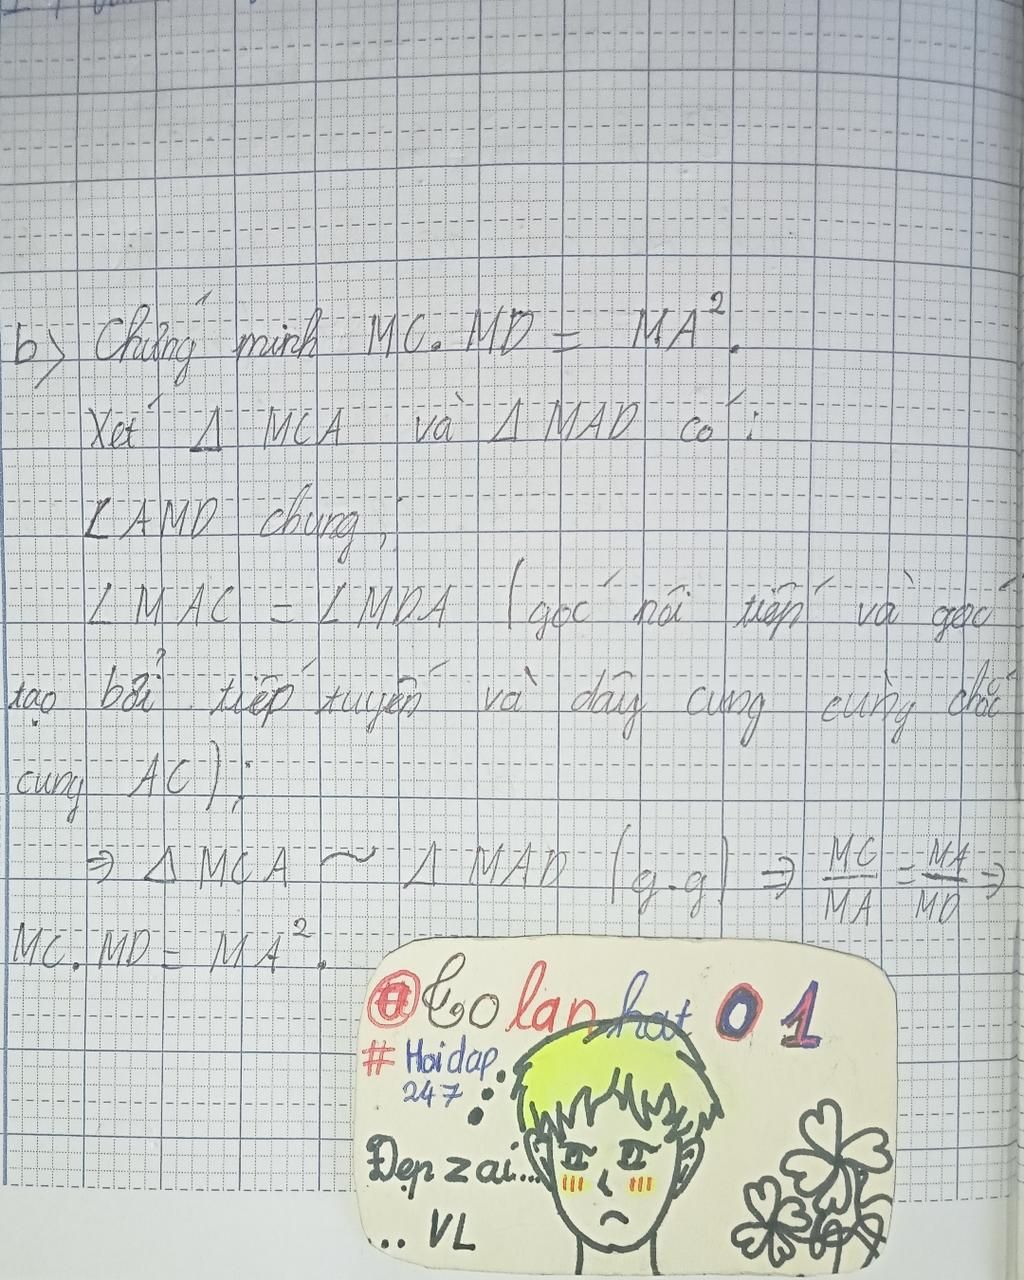 b) Chứng minh MC.MD = MA².
Xét Δ MCA và Δ MAD có:
∠AMD chung;
∠MAC = ∠MDA (góc nôi tiếp và góc
tạo bởi tiếp tuyến và dây cung cùng chắc
cung AC);
⇒ Δ MCA ~ Δ MAD (g-g) ⇒ MC/MA = MA/MD ⇒
MC.MD = MA².
@tolanhat01
# Hoidap
247
Đẹp zai...
... VL